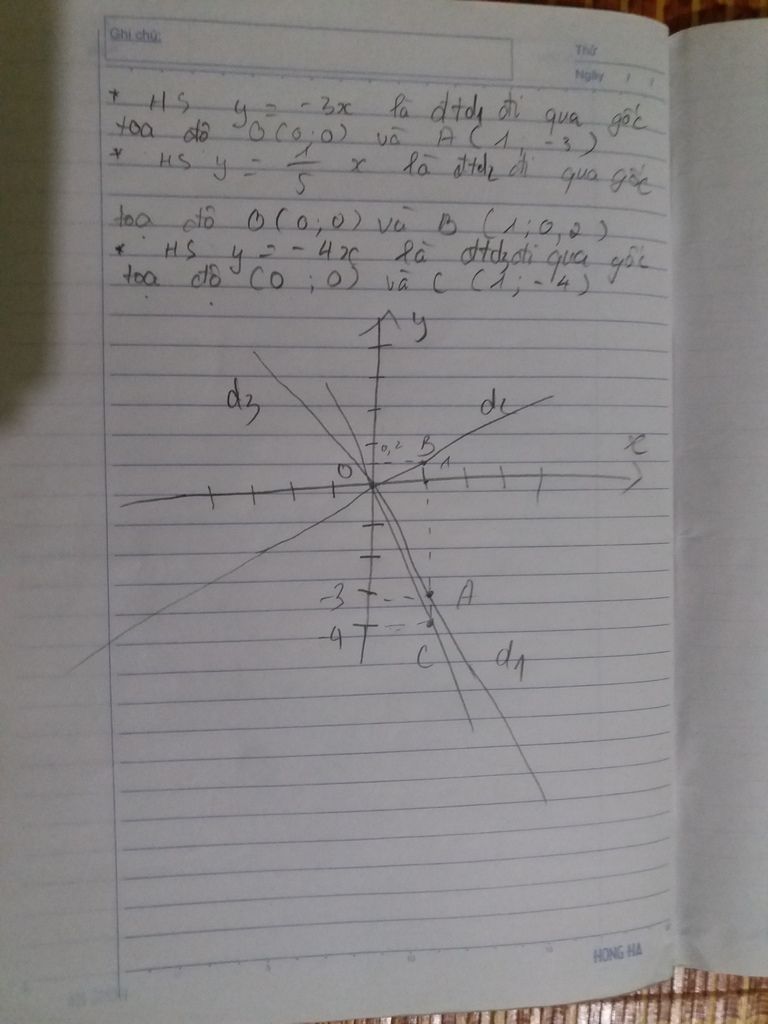 Ghi chú:
Thứ
Ngày / /
* HS y = -3x là đtd1 đi qua gốc
toạ độ O(0;0) và A(1; -3)
* HS y = 1/5 x là đtd2 đi qua gốc
toạ độ O(0;0) và B (1;0,2)
* HS y = -4x là đtd3 đi qua gốc
toạ độ (0;0) và C (1;-4)
y
d3
d2
0,2
B
x
O
1
-3
A
-4
C
d1
HONG HA